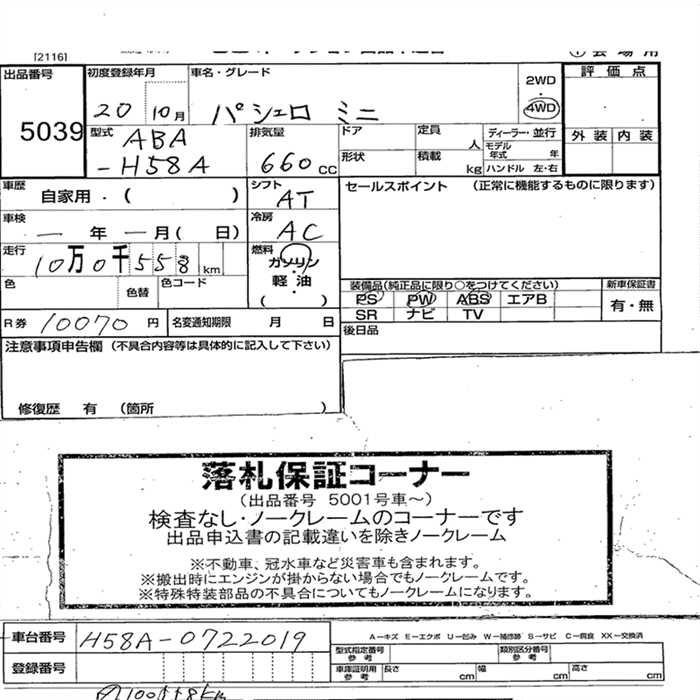 [2116]
出品番号 初度登録年月 車名・グレード 2WD 評価点
5039 20 10月 パジェロ ミニ 4WD
型式 ABA 排気量 ドア 定員 人 ディーラー・並行 外装 内装
-H58A 660cc 形状 積載 kg モデル年式 年 ハンドル 左・右
車歴 自家用・( ) シフト AT セールスポイント (正常に機能するものに限ります)
車検 一 年 一 月( 日) 冷房 AC
走行 10万0千558km 燃料 ガソリン・軽油( )
色 色替 色コード 装備品(純正品に限り○をつけてください) 新車保証書
PS PW ABS エアB 有・無
SR ナビ TV
R券 10070円 名変通知期限 月 日 後日品
注意事項申告欄 (不具合内容等は具体的に記入して下さい)
修復歴 有 (箇所 )
落札保証コーナー
(出品番号 5001号車~)
検査なし・ノークレームのコーナーです
出品申込書の記載違いを除きノークレーム
※不動車、冠水車など災害車も含まれます。
※搬出時にエンジンが掛からない場合でもノークレームです。
※特殊特装部品の不具合についてもノークレームになります。
車台番号 H58A-0722019 A-キズ E-エクボ U-凹み W-補修跡 S-サビ C-腐食 XX-交換済
型式指定番号 参考 類別区分番号 参考
登録番号 車庫証明用 参考 長さ cm 幅 cm 高さ cm